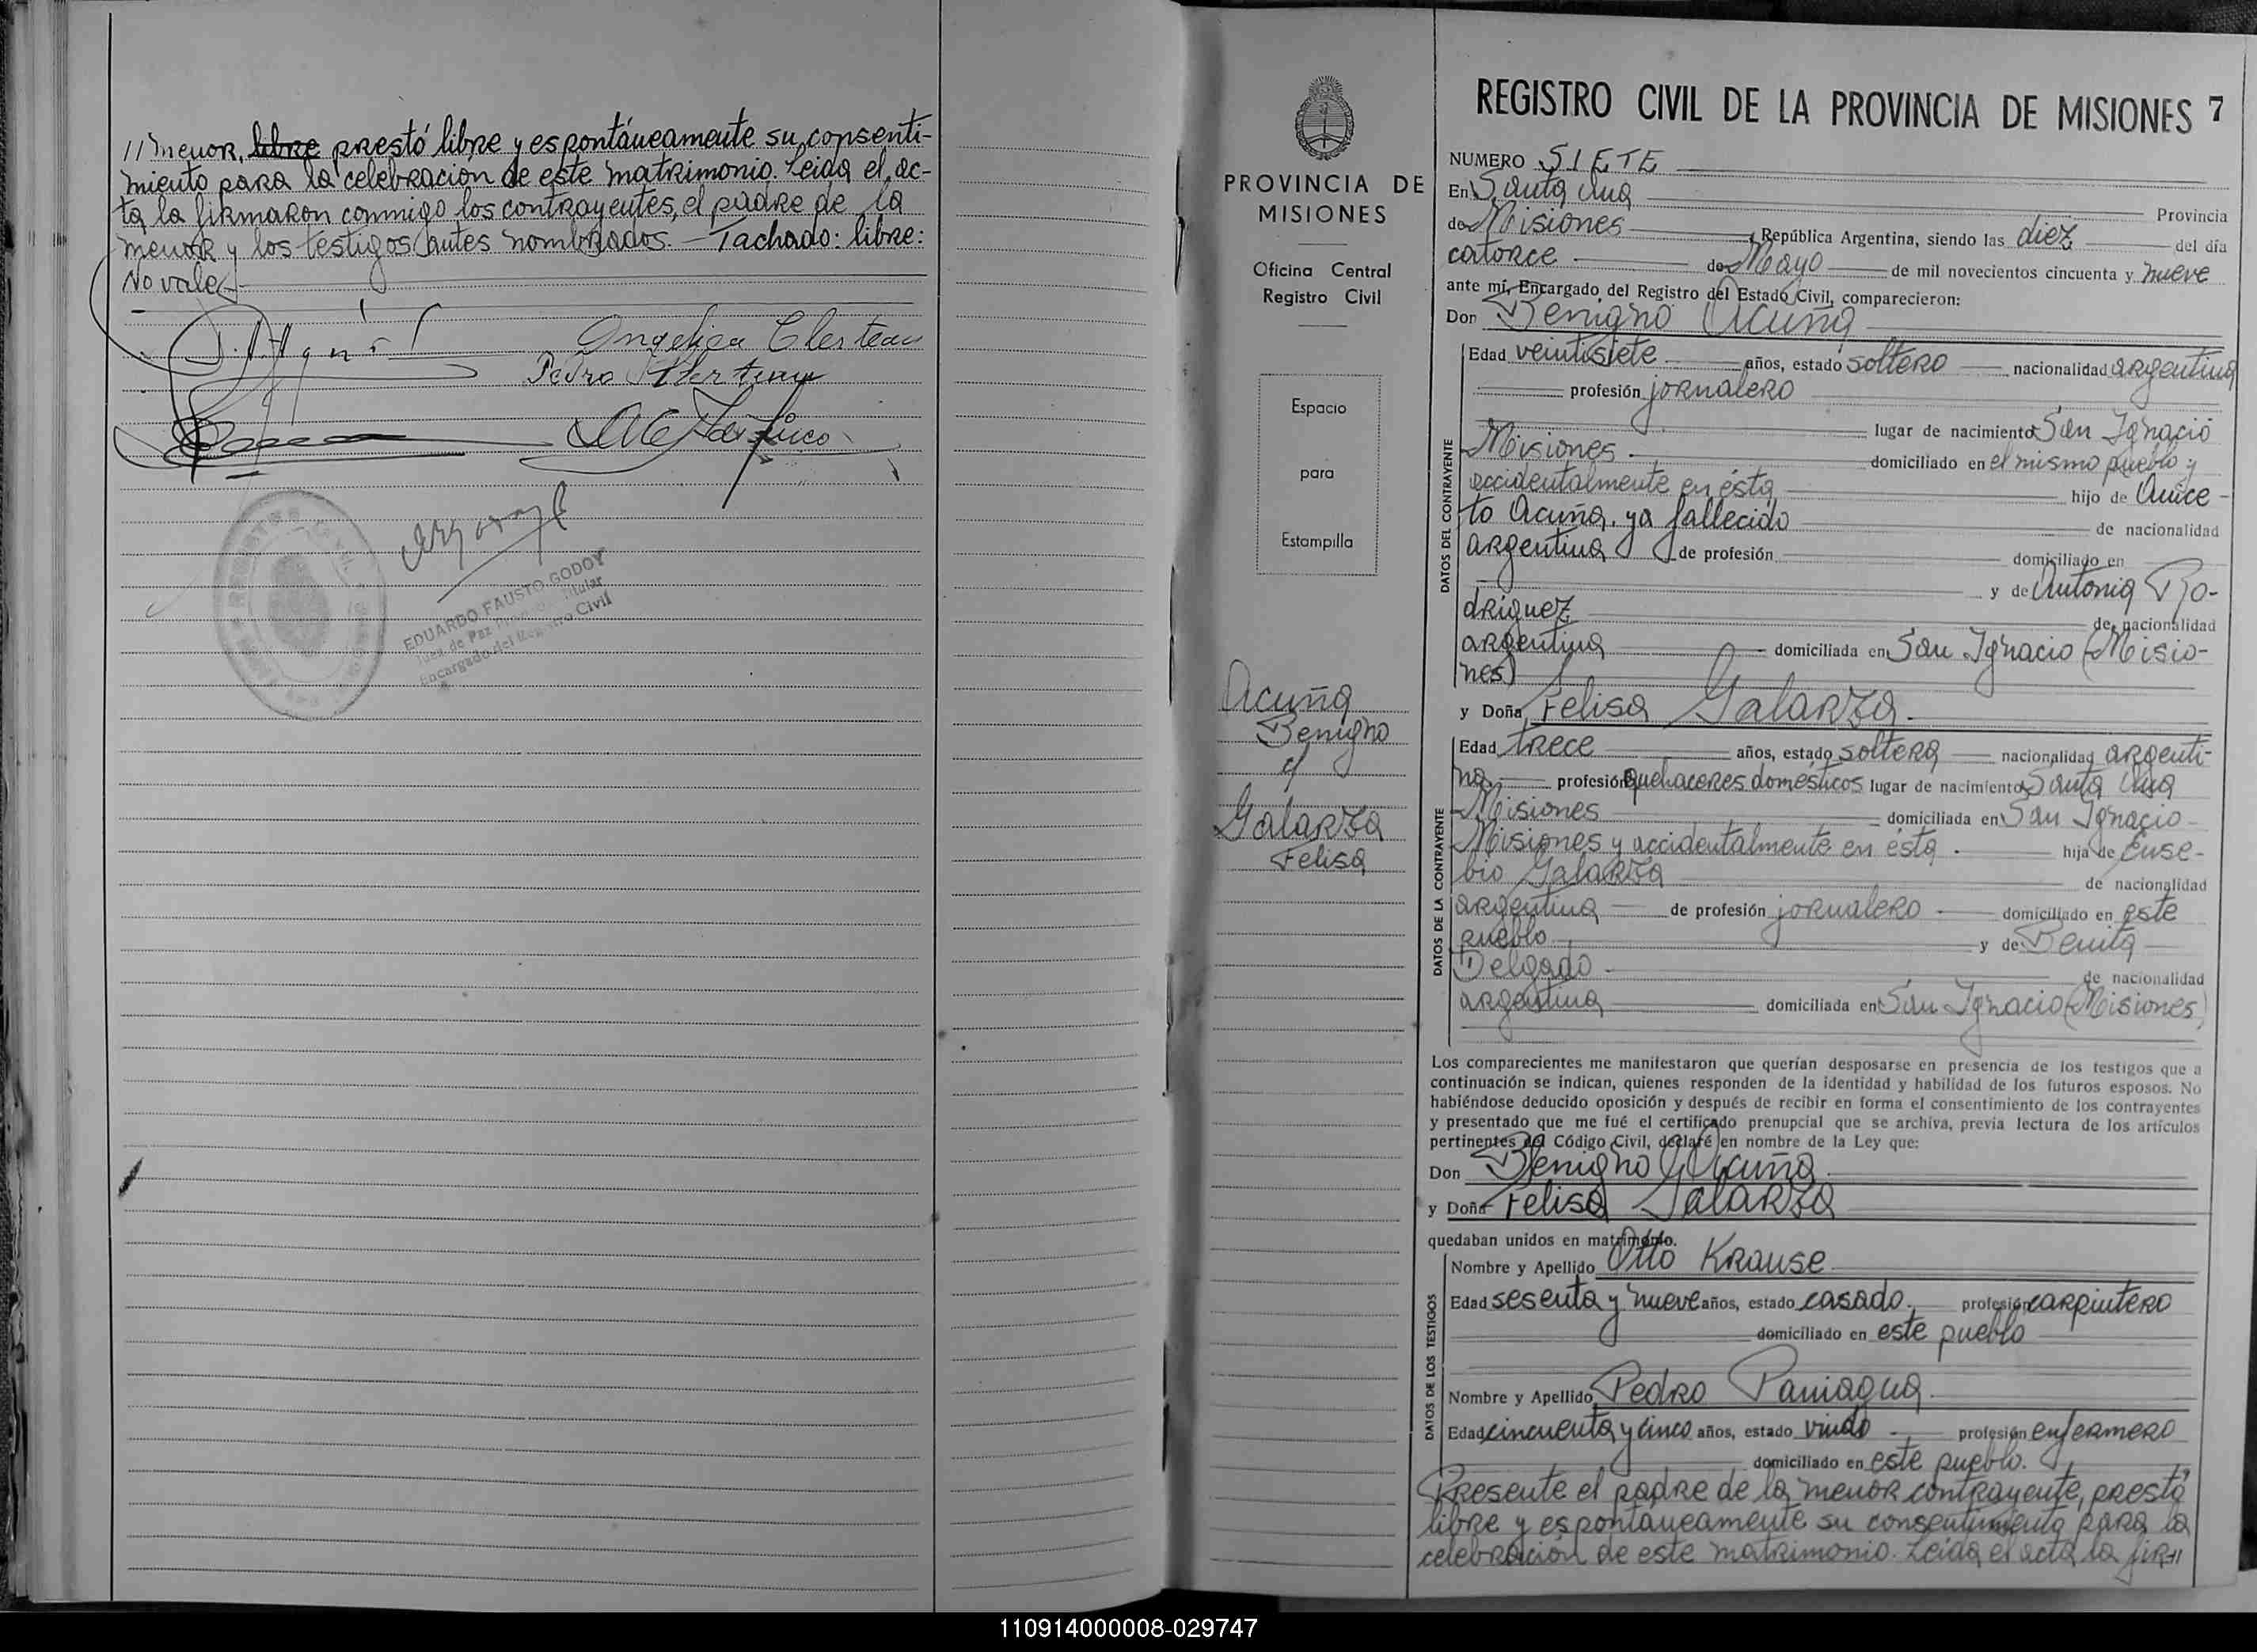 // menor, libre prestó libre y espontáneamente su consenti-
miento para la celebración de este matrimonio. Leida el ac-
ta la firmaron conmigo los contrayentes, el padre de la
menor y los testigos antes nombrados. — Tachado: libre:
No vale
Pedro
EDUARDO FAUSTO GODOY
Juez de Paz Titular
Encargado del Registro Civil
PROVINCIA DE
MISIONES
Oficina Central
Registro Civil
Espacio
para
Estampilla
Acuña
Benigno
y
Galarza
Felisa
REGISTRO CIVIL DE LA PROVINCIA DE MISIONES 7
NUMERO SIETE
En Santa Ana
Provincia
de Misiones , República Argentina, siendo las diez del día
catorce de Mayo de mil novecientos cincuenta y nueve
ante mí, Encargado del Registro del Estado Civil, comparecieron:
Don Benigno Acuña
DATOS DEL CONTRAYENTE
Edad veintisiete años, estado soltero nacionalidad argentina
profesión jornalero
lugar de nacimiento San Ignacio
Misiones. domiciliado en el mismo pueblo y
accidentalmente en ésta, hijo de Anice-
to Acuña, ya fallecido de nacionalidad
argentina de profesión domiciliado en
y de Antonia Ro-
driguez de nacionalidad
argentina domiciliada en San Ignacio (Misio-
nes)
y Doña Felisa Galarza.
DATOS DE LA CONTRAYENTE
Edad trece años, estado soltera nacionalidad argenti-
na. profesión quehaceres domésticos lugar de nacimiento Santa Ana
Misiones domiciliada en San Ignacio
Misiones y accidentalmente en ésta. hija de Euse-
bio Galarza de nacionalidad
argentina de profesión jornalero domiciliado en este
pueblo y de Benita
Delgado de nacionalidad
argentina domiciliada en San Ignacio (Misiones)
Los comparecientes me manifestaron que querían desposarse en presencia de los testigos que a
continuación se indican, quienes responden de la identidad y habilidad de los futuros esposos. No
habiéndose deducido oposición y después de recibir en forma el consentimiento de los contrayentes
y presentado que me fué el certificado prenupcial que se archiva, previa lectura de los artículos
pertinentes del Código Civil, declaré en nombre de la Ley que:
Don Benigno Acuña
y Doña Felisa Galarza
quedaban unidos en matrimonio.
DATOS DE LOS TESTIGOS
Nombre y Apellido Otto Krause
Edad sesenta y nueve años, estado casado. profesión carpintero
domiciliado en este pueblo
Nombre y Apellido Pedro Paniagua
Edad cincuenta y cinco años, estado viudo profesión enfermero
domiciliado en este pueblo.
Presente el padre de la menor contrayente, prestó
libre y espontáneamente su consentimiento para la
celebración de este matrimonio. Leida el acta la fir-//
110914000008-029747